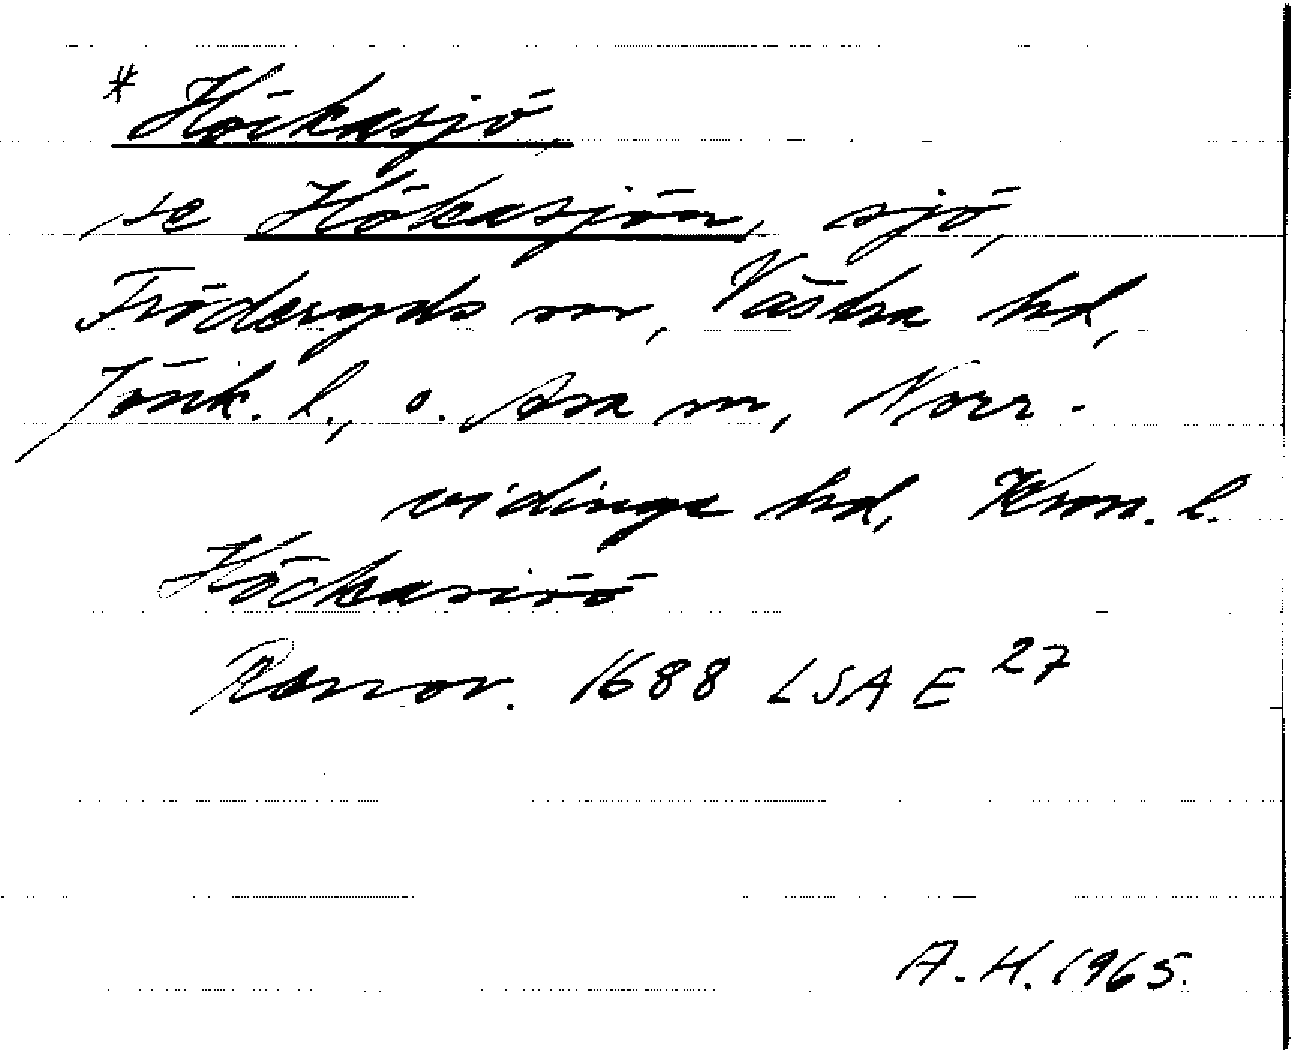 * Höckasjö
se Hökasjön, sjö,
Fröderyds sn, Västra hd,
Jönk. l., o. Asa sn, Norr-
vidinge hd, Kron. l.
Höckasiöö
Rannor. 1688 LSA E 27
A. H. 1965.